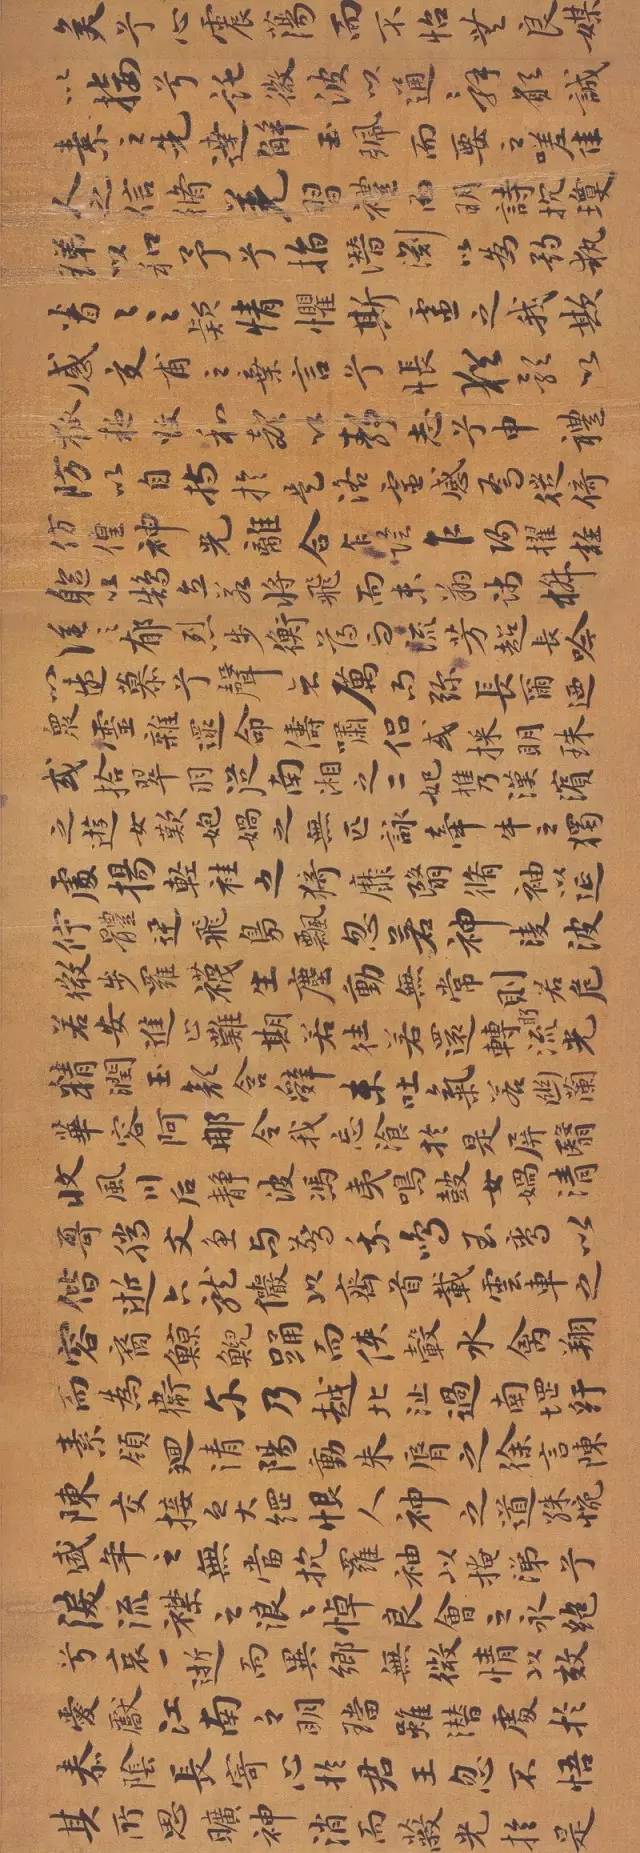 矣兮心震蕩而不怡無良媒
以接兮託微波以通辞願誠
素之先達解玉珮而要之嗟佳
人之信脩羌習禮而明詩抗瓊
珶以和予兮指潛淵以為期執
眷〻之款情懼斯靈之我欺
感交甫之棄言兮悵猶豫以
狐疑收和顏以靜志兮申禮
防以自持於是洛靈感焉徙倚
彷徨神光離合乍陰乍陽擢輕
軀以鶴立若將飛而未翔踐椒
塗之郁烈步衡薄而流芳超長吟
以遠慕兮聲哀厲而彌長爾迺
眾靈雜遝命儔嘯侶或採明珠
或拾翠羽從南湘之二妃攜漢濱
之遊女歎匏媧之無匹詠牽牛之獨
處揚輕袿之猗靡翳脩袖以延
佇體迅飛鳧飄忽若神淩波
微步羅襪生塵動無常則若危
若安進止難期若往若還轉眄流光
精潤玉顏含辭未吐氣若幽蘭
華容阿那令我忘飡於是屏翳
收風川后靜波馮夷鳴鼓女媧清
哥騰文魚以警乘鳴玉鸞以
偕逝六龍儼以齊首載雲車之
容裔鯨鯢踊而俠轂水禽翔
而為衛尔乃越北沚過南罡紆
素領迴清陽動朱脣之徐言陳
陳交接之大綱恨人神之道殊怨
盛年之無當抗羅袖以掩涕兮
淚流襟之浪〻悼良會之永絕
兮哀一逝而異鄉無微情以效
愛獻江南之明璫雖潛處於
泰陰長寄心於君王忽不悟
其所思曠神消而蔽光於是